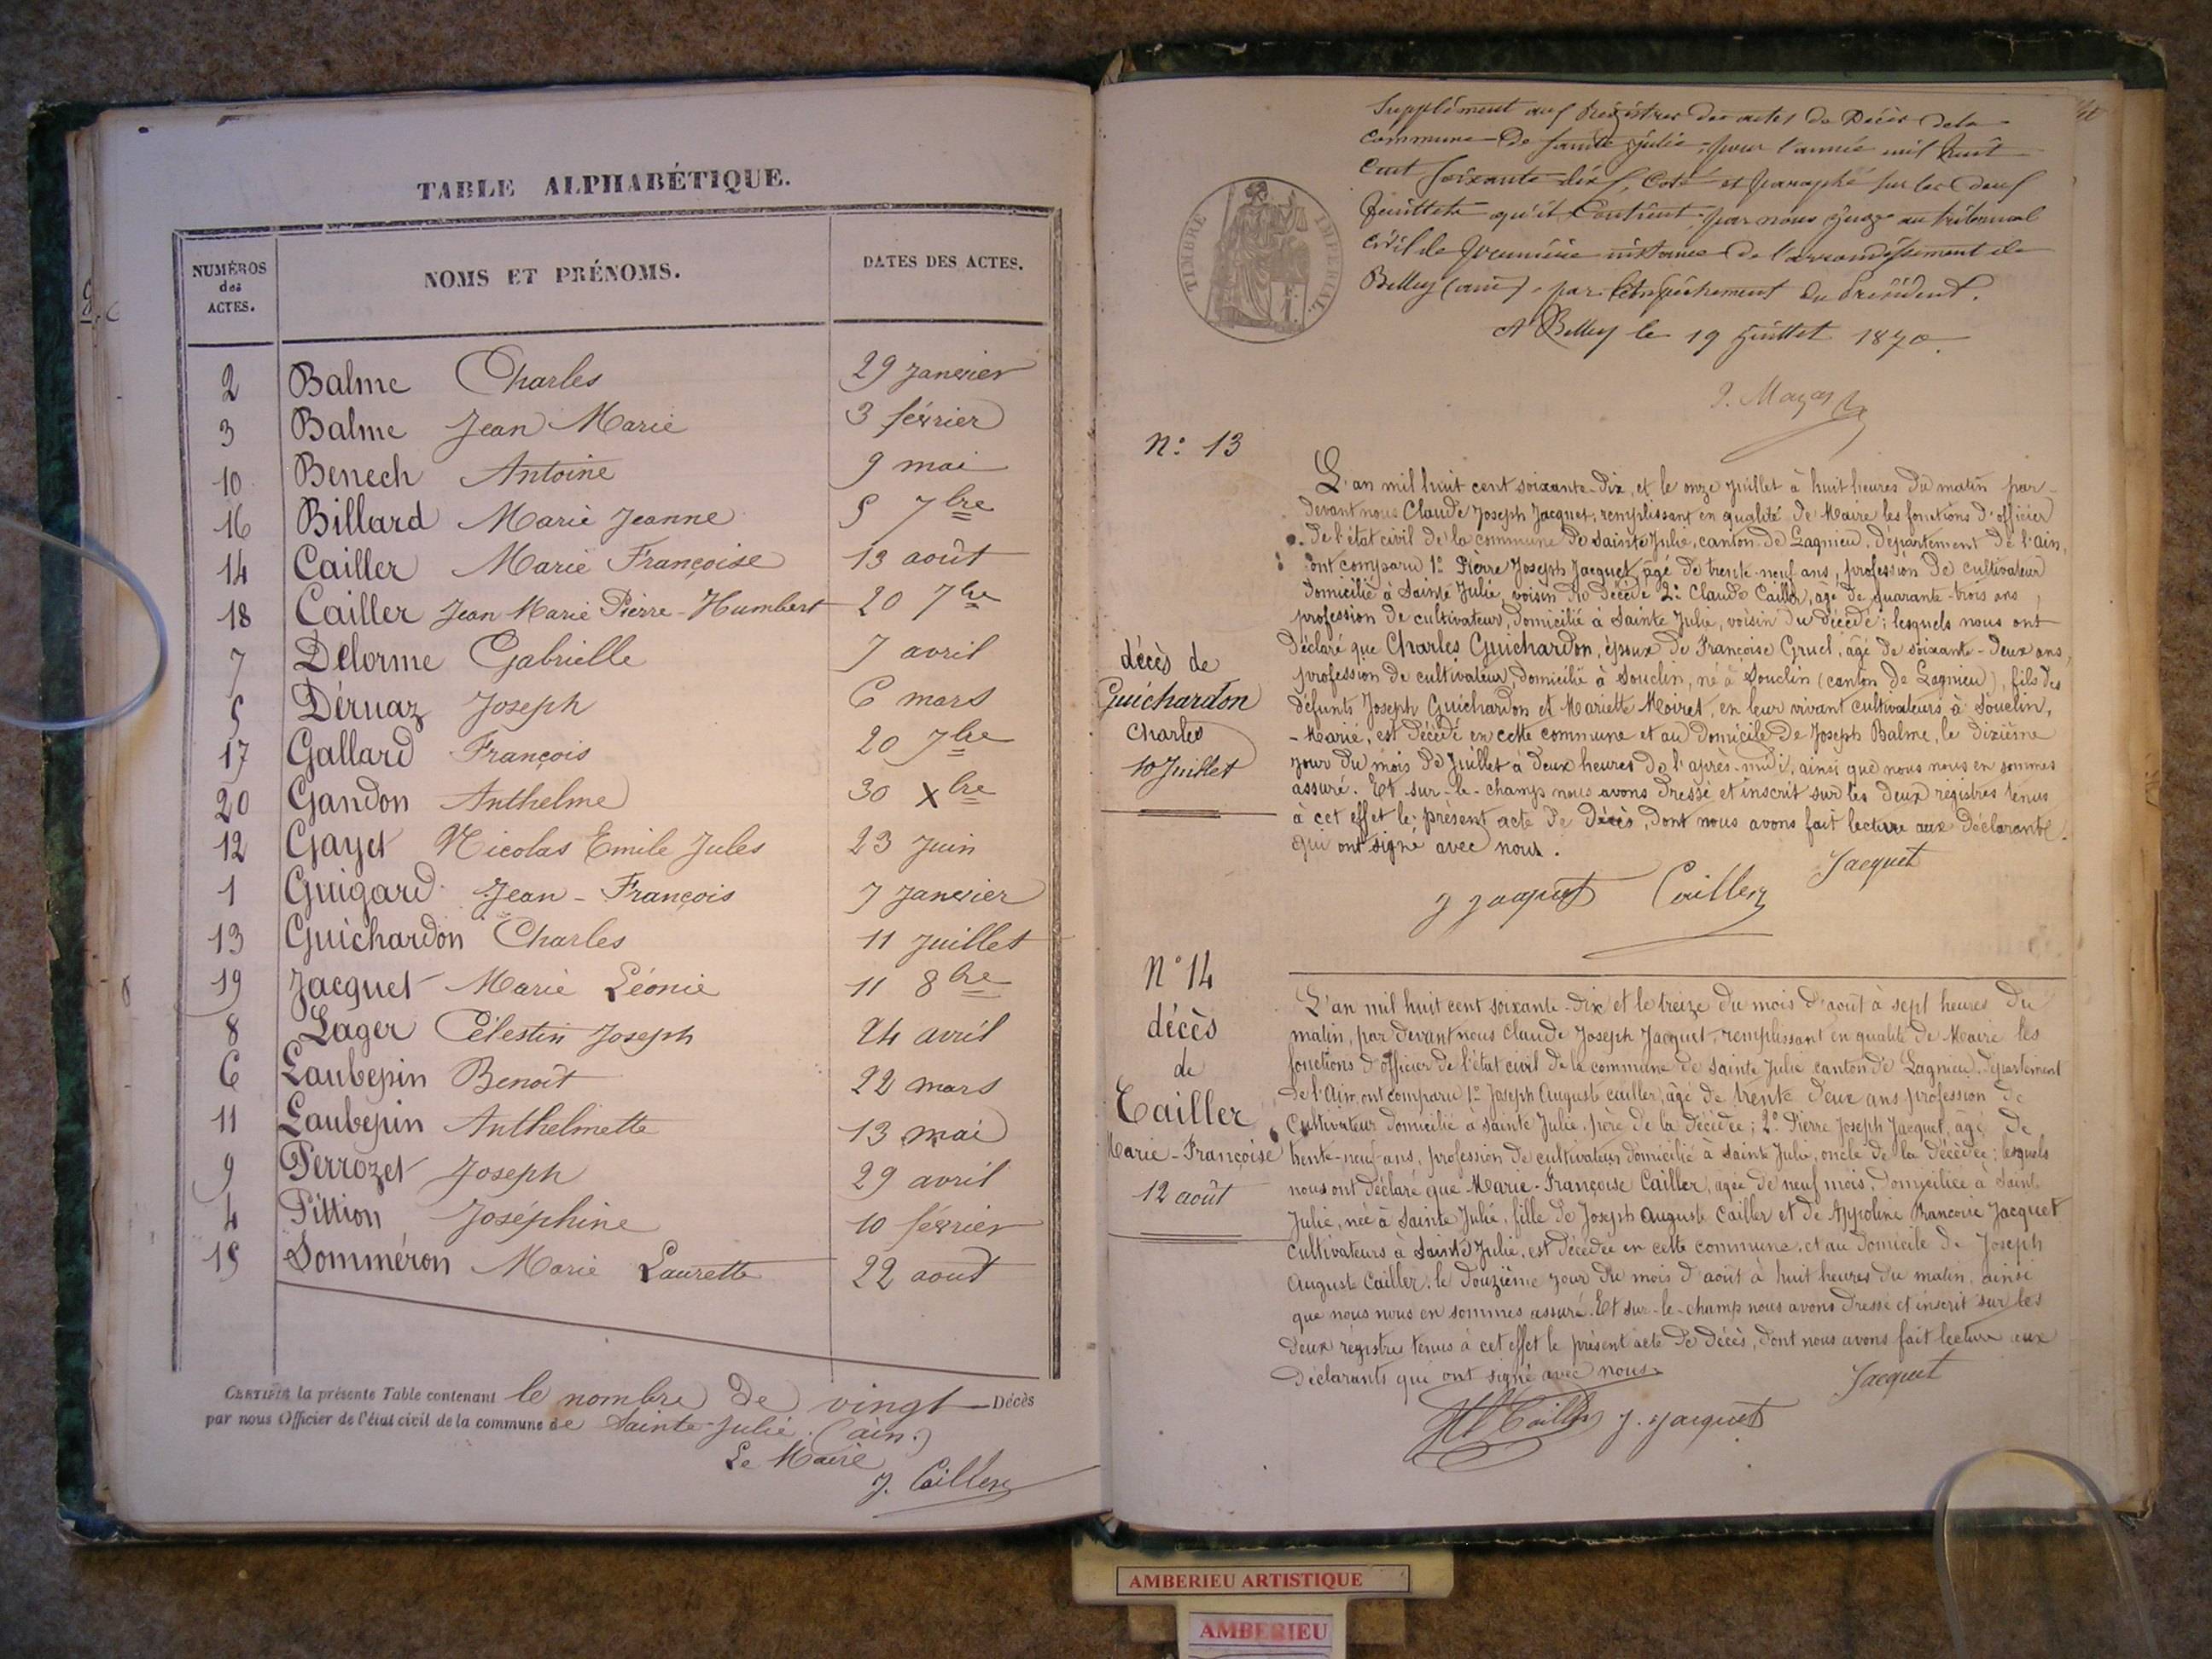 TABLE ALPHABÉTIQUE.
NUMÉROS des ACTES.
NOMS ET PRÉNOMS.
DATES DES ACTES.
2 Balme Charles 29 janvier
3 Balme Jean Marie 3 février
10 Benech Antoine 9 mai
16 Billard Marie Jeanne 5 7bre
14 Cailler Marie Françoise 13 août
18 Cailler Jean Marie Pierre-Humbert 20 7bre
7 Delorme Gabrielle 7 avril
5 Déruaz Joseph 6 mars
17 Gallard François 20 7bre
20 Gandon Anthelme 30 Xbre
12 Gayet Nicolas Emile Jules 23 Juin
1 Guigard Jean-François 7 Janvier
13 Guichardon Charles 11 Juillet
19 Jacquet Marie Léonie 11 8bre
8 Lager Célestin Joseph 24 avril
6 Laubepin Benoît 22 mars
11 Laubepin Anthelmette 13 mai
9 Perrozet Joseph 29 avril
4 Pittion Joséphine 10 février
15 Somméron Marie Laurette 22 aout
CERTIFIÉ la présente Table contenant le nombre de vingt Décès
par nous Officier de l'état civil de la commune de Sainte-Julie. (ain.)
Le Maire
J. Cailler
Supplément aux Registres des actes de Décès de la
commune de Sainte Julie, pour l'année mil huit
cent soixante dix, coté et paraphé sur les deux
feuillets qu'il contient, par nous Juge au tribunal
civil de première instance de l'arrondissement de
Belley (ain), par l'empêchement du Président.
A Belley le 19 Juillet 1870.
TIMBRE IMPÉRIAL.
N: 13
décès de
Guichardon
Charles
10 Juillet
L'an mil huit cent soixante-dix, et le onze juillet à huit heures du matin par-
devant nous Claude Joseph Jacquet, remplissant en qualité de Maire les fonctions d'officier
de l'état civil de la commune de Sainte Julie, canton de Lagnieu, département de l'Ain,
ont comparu 1° Pierre Joseph Jacquet âgé de trente-neuf ans, profession de cultivateur
domicilié à Sainte Julie, voisin du décédé 2° Claude Cailler, âgé de quarante-trois ans,
profession de cultivateur, domicilié à Sainte Julie, voisin du décédé; lesquels nous ont
déclaré que Charles Guichardon, époux de Françoise Gruel, âgé de soixante-deux ans,
profession de cultivateur, domicilié à Souclin, né à Souclin (canton de Lagnieu), fils des
défunts Joseph Guichardon et Mariette Moiret, en leur vivant cultivateurs à Souclin,
- Marié, est décédé en cette commune et au domicile de Joseph Balme, le dixième
jour du mois de Juillet à deux heures de l'après-midi, ainsi que nous nous en sommes
assuré. Et sur-le-champ nous avons dressé et inscrit sur les deux registres tenus
à cet effet le présent acte de décès, dont nous avons fait lecture aux déclarants
qui ont signé avec nous.
J Jacquet Cailler Jacquet
N° 14
décès
de
Cailler
Marie-Françoise
12 août
L'an mil huit cent soixante-dix et le treize du mois d'août à sept heures du
matin, par devant nous Claude Joseph Jacquet, remplissant en qualité de Maire les
fonctions d'officier de l'état civil de la commune de Sainte Julie canton de Lagnieu, département
de l'Ain, ont comparu 1° Joseph Auguste Cailler, âgé de trente deux ans profession de
Cultivateur domicilié à Sainte Julie, père de la décédée; 2° Pierre Joseph Jacquet, âgé de
trente-neuf ans, profession de cultivateur domicilié à Sainte Julie, oncle de la décédée; lesquels
nous ont déclaré que Marie-Françoise Cailler, agée de neuf mois, domiciliée à Sainte
Julie, née à Sainte Julie, fille de Joseph Auguste Cailler et de Appoline Francoise Jacquet
Cultivateurs à Sainte Julie, est décédée en cette commune, et au domicile de Joseph
Auguste Cailler, le douzième jour du mois d'août à huit heures du matin, ainsi
que nous nous en sommes assuré. Et sur-le-champ nous avons dressé et inscrit sur les
deux régistres tenus à cet effet le présent acte de décès, dont nous avons fait lecture aux
déclarants qui ont signé avec nous.
Cailler J. Jacquet Jacquet
AMBERIEU ARTISTIQUE
AMBERIEU